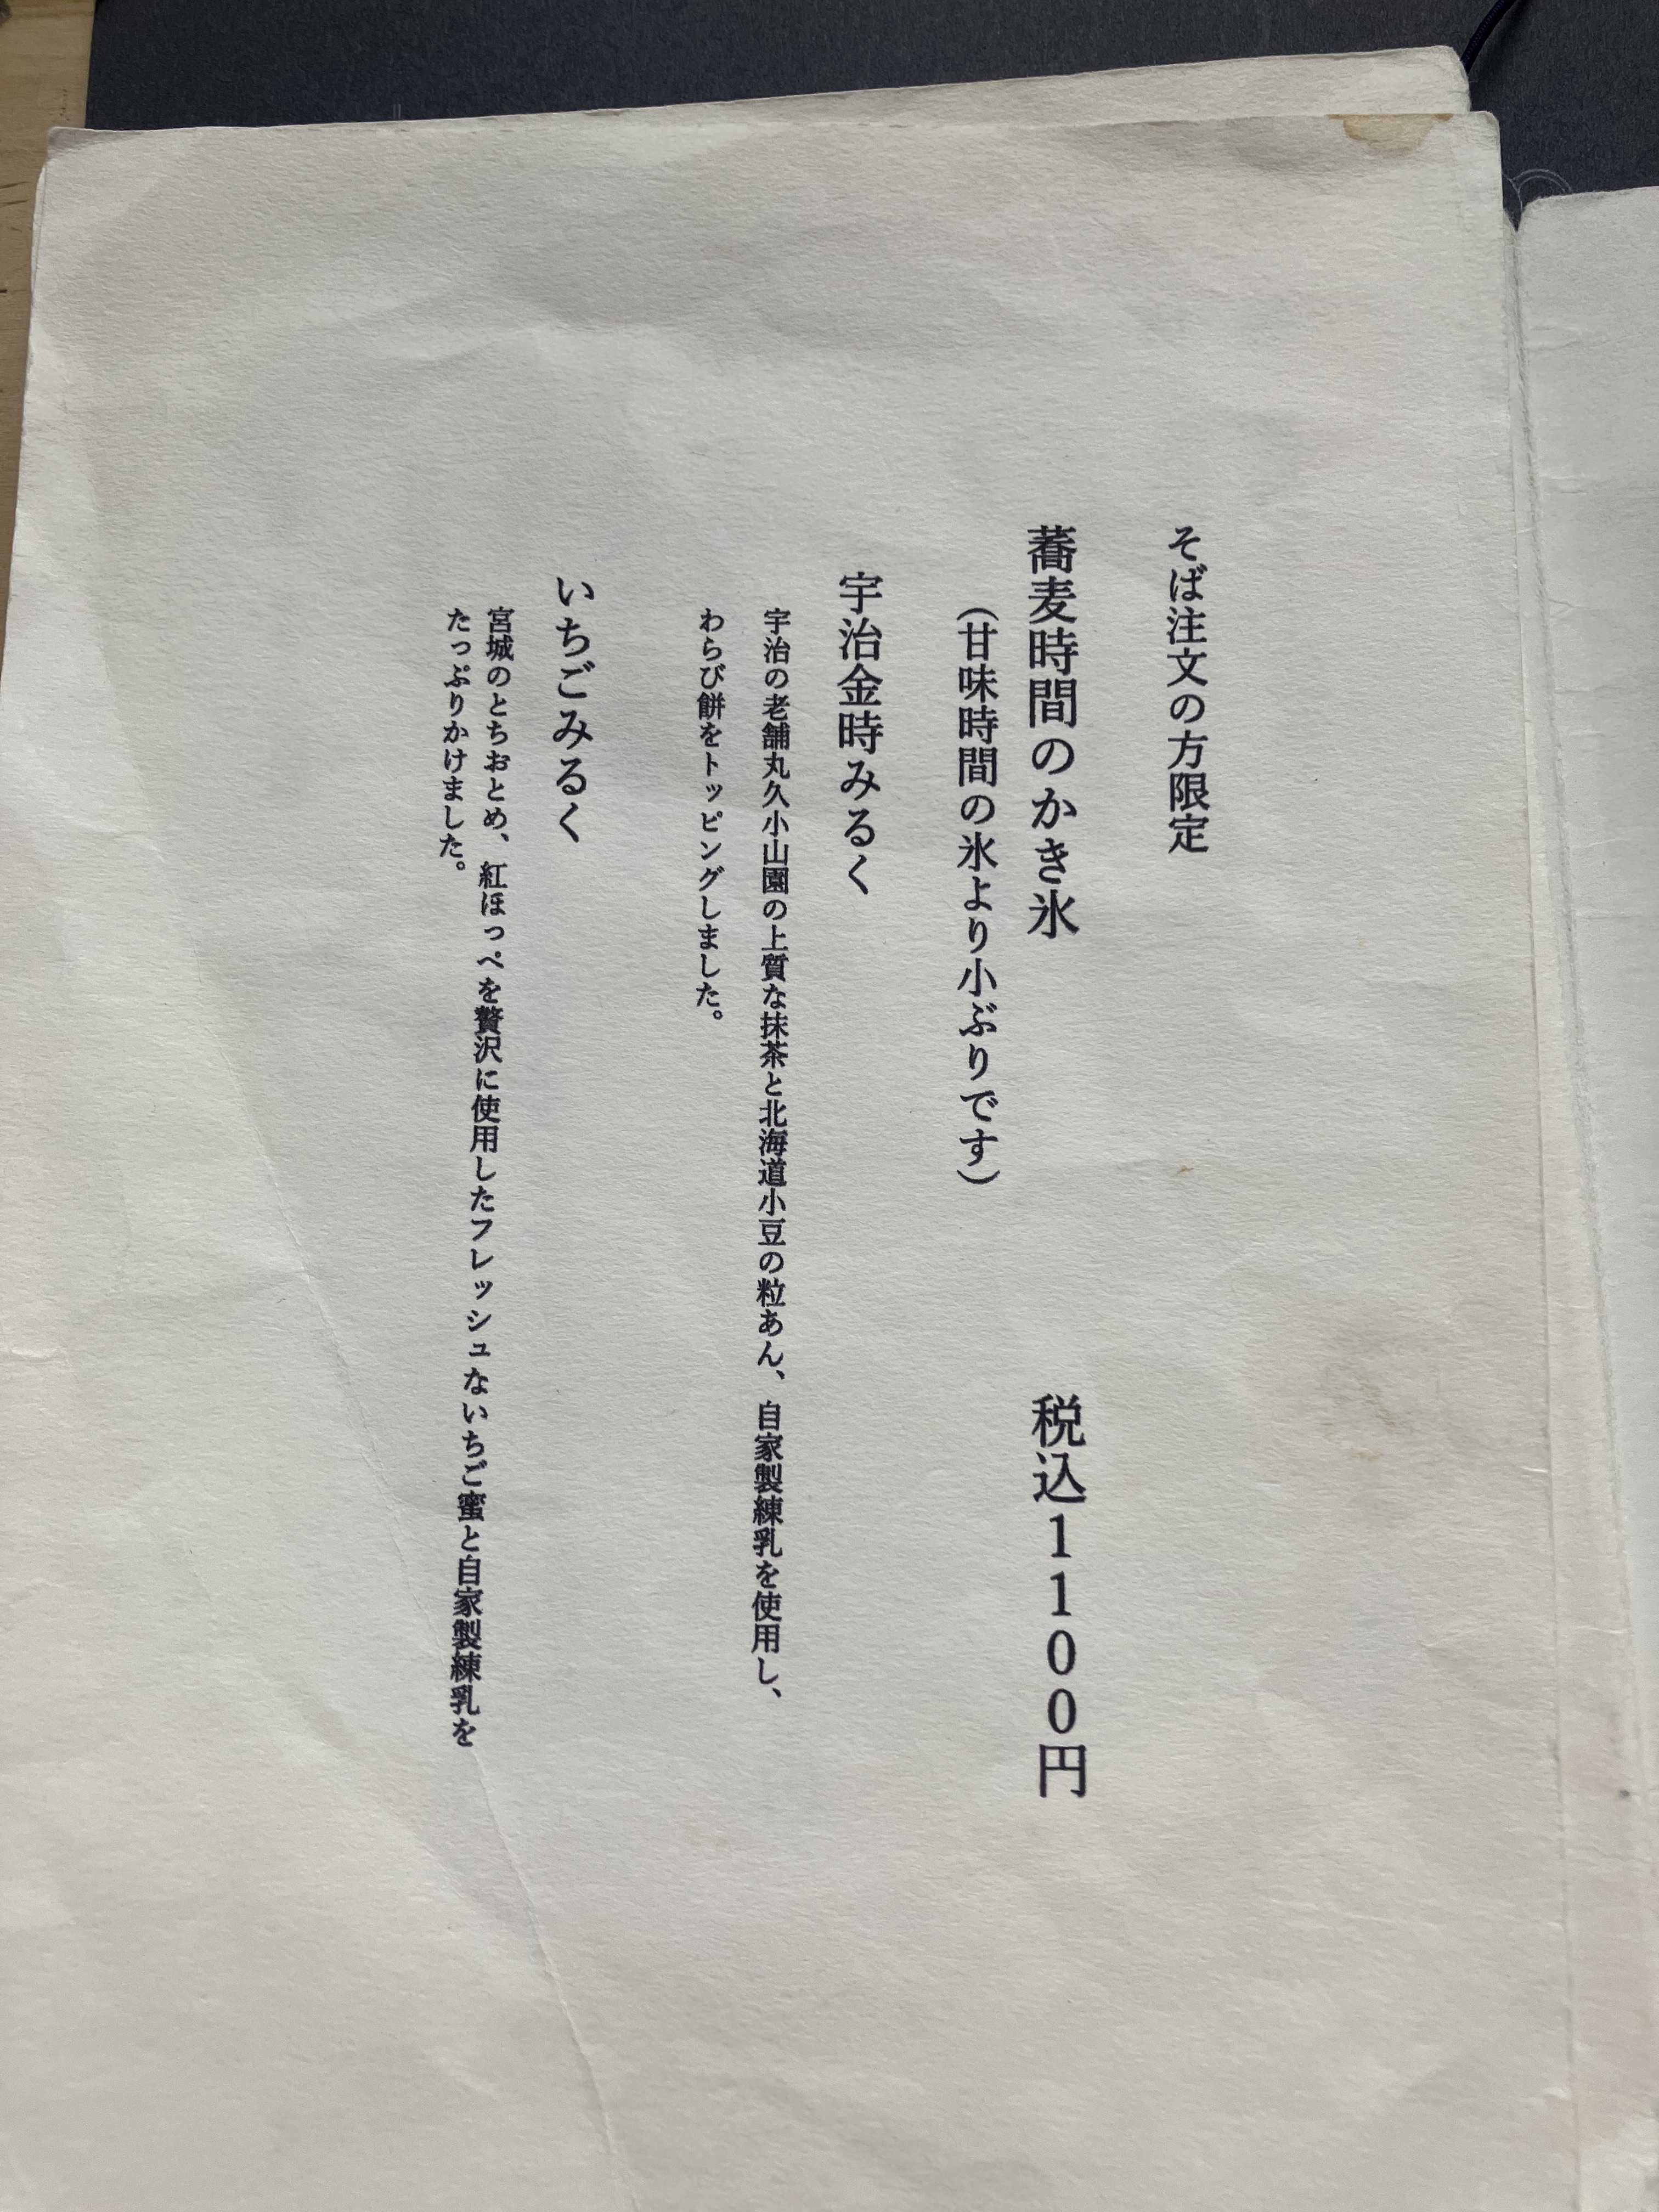 そば注文の方限定
蕎麦時間のかき氷　税込1100円
（甘味時間の氷より小ぶりです）
宇治金時みるく
宇治の老舗丸久小山園の上質な抹茶と北海道小豆の粒あん、自家製練乳を使用し、
わらび餅をトッピングしました。
いちごみるく
宮城のとちおとめ、紅ほっぺを贅沢に使用したフレッシュないちご蜜と自家製練乳を
たっぷりかけました。